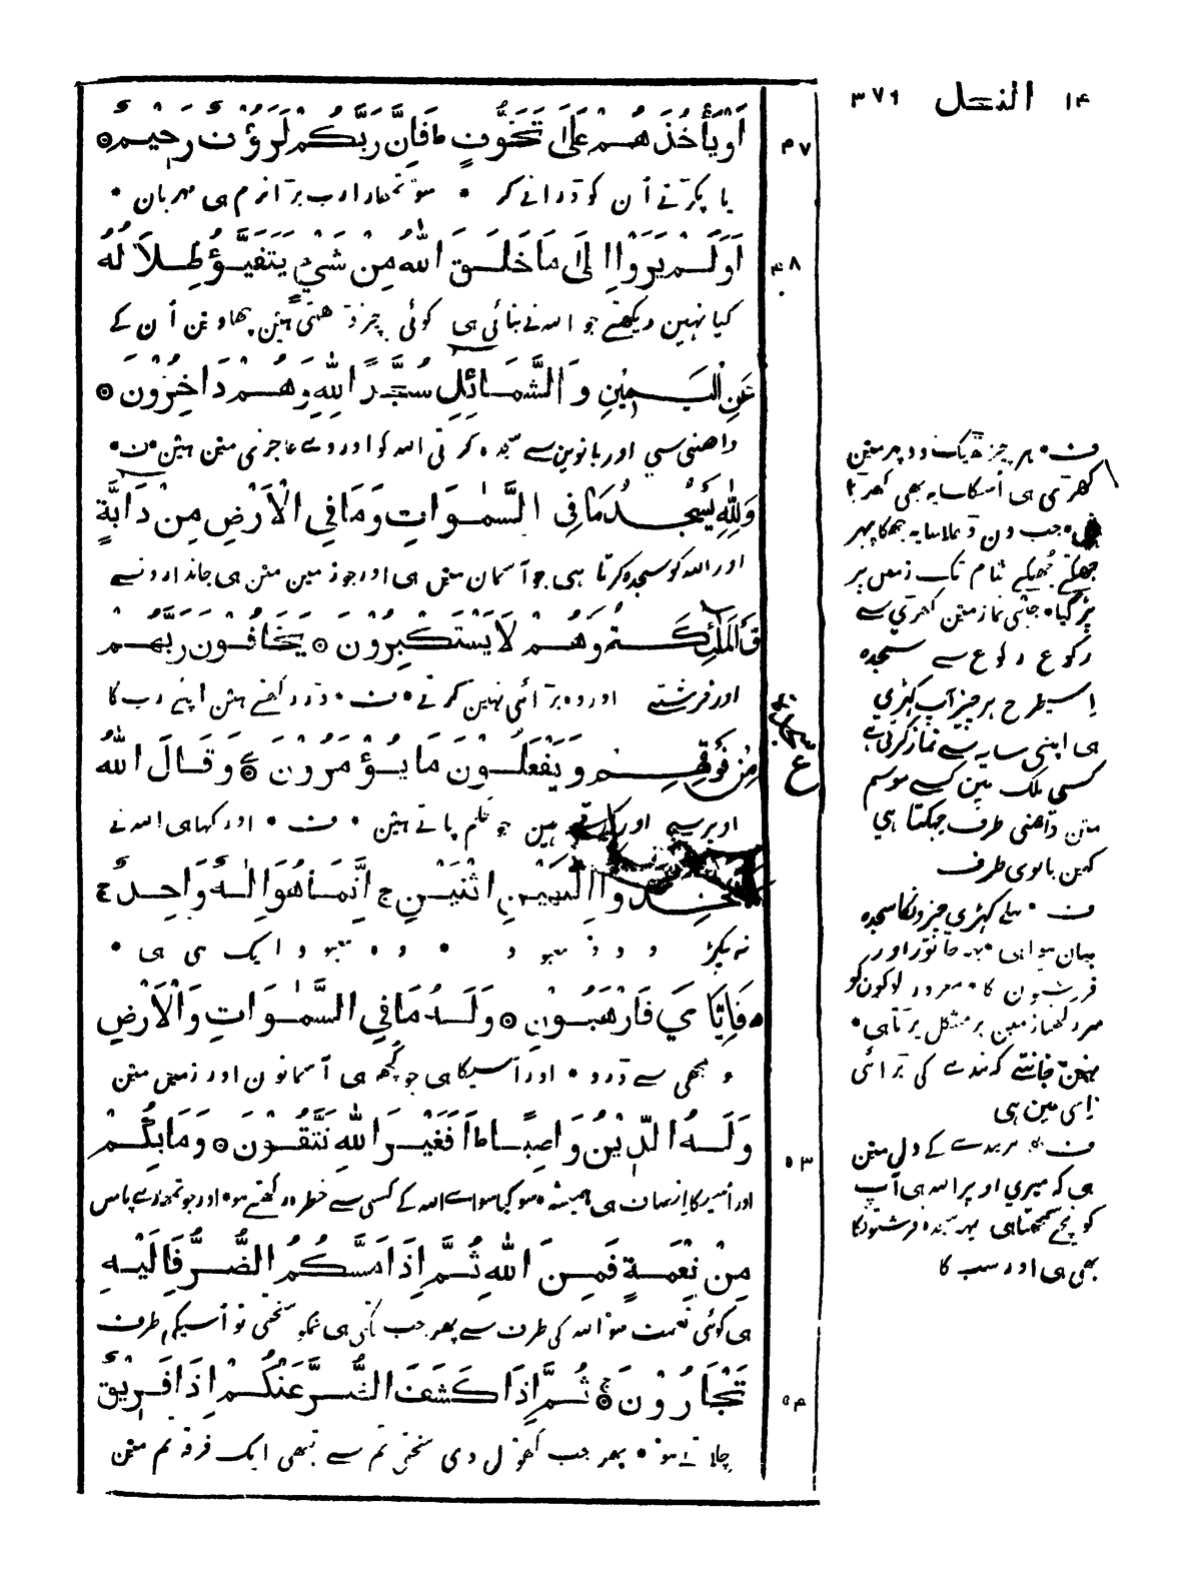 ١٤ النحل ٣٧٦
٤٧
اَوْيَأْخُذَ هُمْ عَلَىٰ تَخَوُّفٍ ؕ فَاِنَّ رَبَّكُمْ لَرَؤُفٌ رَحِيْمٌ ۝
یا پکڑتے اُن کو ڈرانے کر • سو تمھارا رب بڑا نرم ہی مہربان •
٤٨
اَوَلَمْ يَرَوْا اِلَىٰ مَا خَلَقَ اللّٰهُ مِنْ شَيْءٍ يَتَفَيَّؤُ ظِلَالُهُ
کیا نہین دیکھتے جو اللہ نے بنائی ہی کوئی چیز ڈھلتی ہین چھاوئن اُن کے
عَنِ الْيَمِيْنِ وَ الشَّمَائِلِ سُجَّدًا لِلّٰهِ وَهُمْ دَاخِرُوْنَ ۝
داھنی سی اور بانوین سے سجدہ کرتی اللہ کو اور وے عاجزی مین ہین • ف •
وَلِلّٰهِ يَسْجُدُ مَا فِي السَّمٰوَاتِ وَمَا فِي الْاَرْضِ مِنْ دَابَّةٍ
اور اللہ کو سجدہ کرتا ہی جو آسمان مین ہی اور جو زمین مین ہی جاندارونسے
وَّ الْمَلٰئِكَةُ وَهُمْ لَا يَسْتَكْبِرُوْنَ ۝ يَخَافُوْنَ رَبَّهُمْ
اور فرشتے اور وہ بڑائی نہین کرتے • ف • ڈر رکھتے ہین اپنے رب کا
مِنْ فَوْقِهِمْ وَيَفْعَلُوْنَ مَا يُؤْمَرُوْنَ ۝ وَقَالَ اللّٰهُ
ع
اوپر سے اور کرتے ہین جو حکم پاتے ہین • ف • اور کہا ہی اللہ نے
اِلٰهَيْنِ اثْنَيْنِ ج اِنَّمَا هُوَ اِلٰهٌ وَاحِدٌ ج
نہ پکڑو دو معبود • وہ معبود ایک ہی ہی •
فَاِيَّايَ فَارْهَبُوْنِ ۝ وَلَهُ مَا فِي السَّمٰوَاتِ وَالْاَرْضِ
و مجھی سے ڈرو • اور اُسیکا ہی جو کچھ ہی آسمانون اور زمین مین
٥٣
وَلَهُ الدِّيْنُ وَاصِبًا ؕ اَفَغَيْرَ اللّٰهِ تَتَّقُوْنَ ۝ وَمَا بِكُمْ
اور اُسیکا انصاف ہی ہمیشہ • سو کیا سواے اللہ کے کسی سے خطرہ رکھتے ہو • اور جو تمھارے پاس
مِنْ نِعْمَةٍ فَمِنَ اللّٰهِ ثُمَّ اِذَا مَسَّكُمُ الضُّرُّ فَاِلَيْهِ
ہی کوئی نعمت سو اللہ کی طرف سے پھر جب لگی ہی تمکو سختی تو اُسیکی طرف
٥٤
تَجْأَرُوْنَ ۝ ثُمَّ اِذَا كَشَفَ الضُّرَّ عَنْكُمْ اِذَا فَرِيْقٌ
چلاتے ہو • پھر جب کھول دی سختی تم سے تبھی ایک فرقہ تم مین
ف • ہر چیز ٹھیک دوپہر مین
کھڑی ہی اُسکا سایہ بھی کھڑا
• جب دن ڈھلا سایہ جھکا پھر
جھکتے جھکتے شام تک زمین پر
پڑ گیا • جیسی نماز مین کھڑی سے
رکوع رکوع سے سجدہ
اِسیطرح ہر چیز آپ کھڑی
ہی اپنی سایہ سے نماز کرتی ہے
کسی ملک مین کسے موسم
مین داھنی طرف جھکتا ہی
کہین بانوی طرف
ف • پہلے کھڑی چیزونکا سجدہ
بیان ہوا ہی • یہ جانور اور
فرشتون کا • مغرور لوگون کو
سر رکھنا زمین پر مشکل پڑتا ہی •
نہین جانتے کہ بندے کی بڑائی
اِسی مین ہی
ف • ہر بندے کے دل مین
ہی کہ میری اوپر اللہ ہی آپ
کو نیچے سمجھتا ہی یہ سجدہ فرشتونکا
بھی ہی اور سب کا